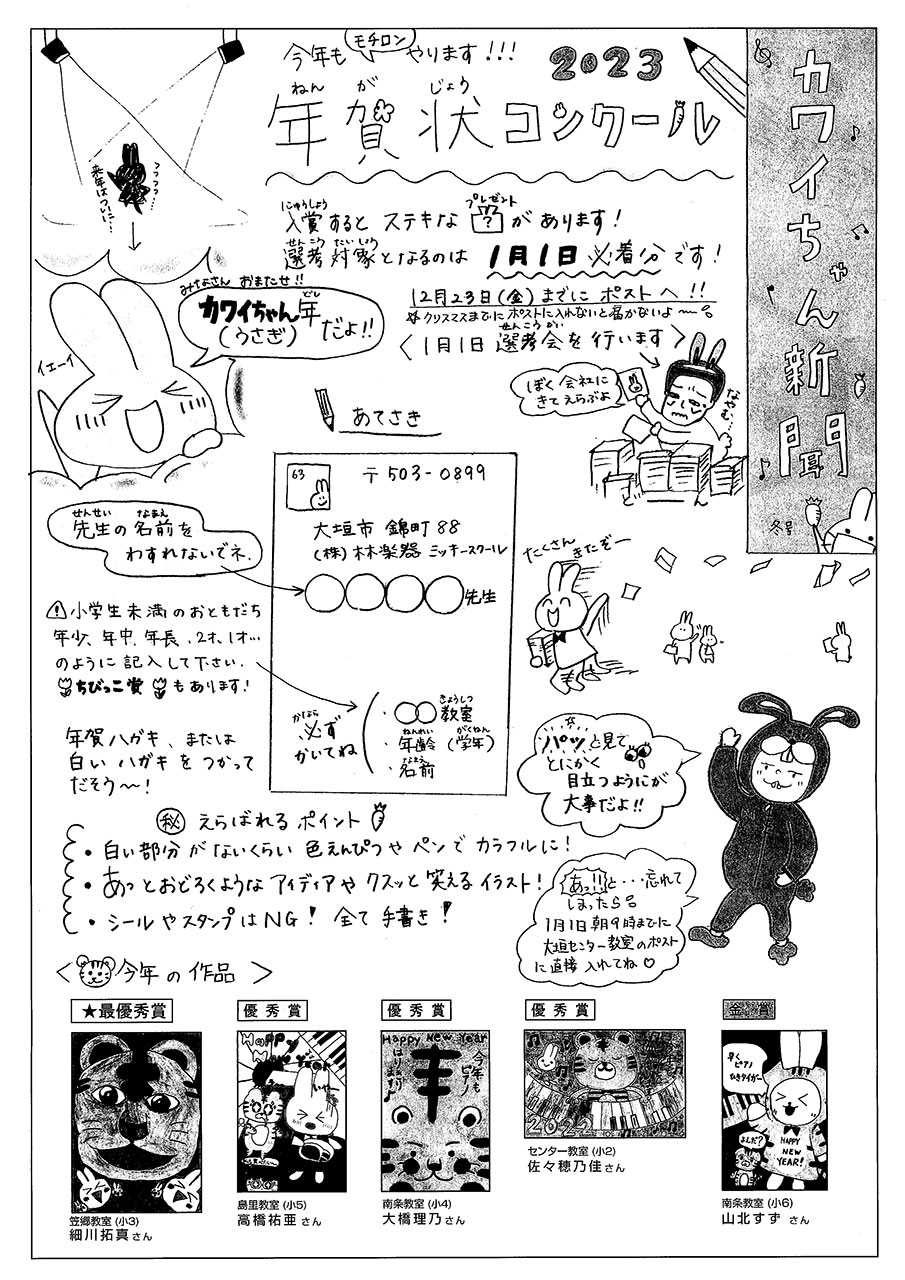 カワイちゃん新聞
冬号
今年も モチロン やります!!!
2023
ねん が じょう
年賀状コンクール
来年はついに…
フフフッ…
にゅうしょう プレゼント
入賞するとステキな ? があります!
せんこう たいしょう
選考対象となるのは 1月1日 必着分です!
12月23日(金)までにポストへ!!
※クリスマスまでにポストに入れないと届かないよ〜。
せんこうかい
〈1月1日 選考会を行います〉
みなさん おまたせ!!
どし
カワイちゃん年
(うさぎ) だよ!!
イエーイ
ぼく会社に
きてえらぶよ
あてさき
63
〒503-0899
大垣市 錦町88
(株)林楽器 ミッキースクール
〇〇〇〇先生
かなら
必ず
かいてね
きょうしつ
・〇〇教室
ねんれい がくねん
・年齢(学年)
なまえ
・名前
せんせい なまえ
先生の名前を
わすれないでネ.
⚠小学生未満のおともだち
年少、年中、年長、2才、1才…
のように記入して下さい.
ちびっこ賞 もあります!
年賀ハガキ、または
白いハガキをつかって
だそう〜!
たくさん
きたぞー
パッと見て
とにかく
目立つようにが
大事だよ!!
㊙えらばれるポイント
・白い部分がないくらい 色えんぴつやペンでカラフルに!
・あっとおどろくようなアイディアやクスッと笑えるイラスト!
・シールやスタンプはNG! 全て手書き!
あっ!!と…忘れて
しまったら。
1月1日朝9時までに
大垣センター教室のポスト
に直接入れてね♡
〈今年の作品〉
★最優秀賞
笠郷教室(小3)
細川拓真さん
優秀賞
Happy
島里教室(小5)
高橋祐亜さん
優秀賞
Happy New Year
今年も
ピアノ
はりきり♪
南条教室(小4)
大橋理乃さん
優秀賞
2022
センター教室(小2)
佐々穂乃佳さん
金賞
早く
ピアノ
ひきタイガー
よんだ?
HAPPY
NEW
YEAR!
南条教室(小6)
山北すずさん